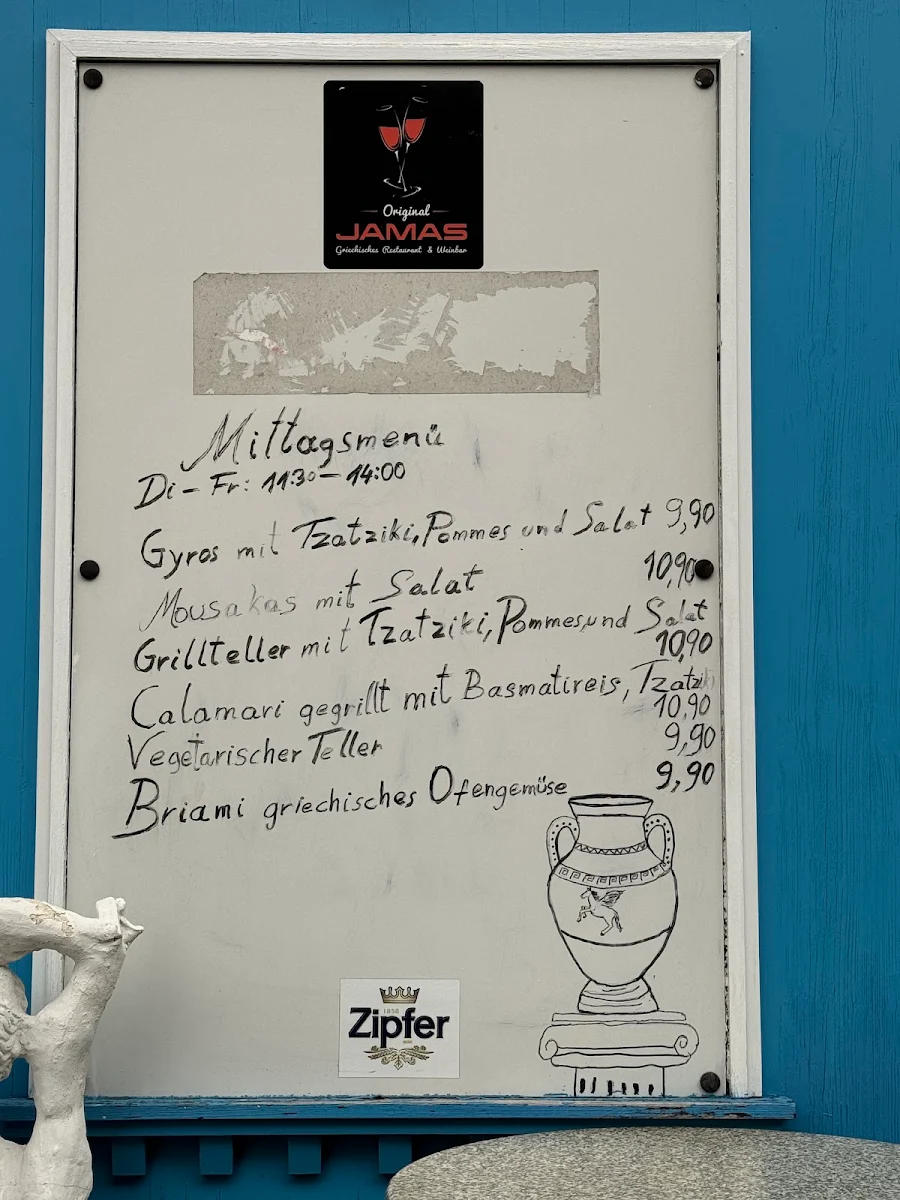 Original
JAMAS
Griechisches Restaurant & Weinbar
Mittagsmenü
Di - Fr: 11:30 - 14:00
Gyros mit Tzatziki, Pommes und Salat 9,90
10,90
Mousakas mit Salat
Grillteller mit Tzatziki, Pommes und Salat
10,90
Calamari gegrillt mit Basmatireis, Tzatziki
10,90
Vegetarischer Teller 9,90
Briami griechisches Ofengemüse 9,90
1858
Zipfer